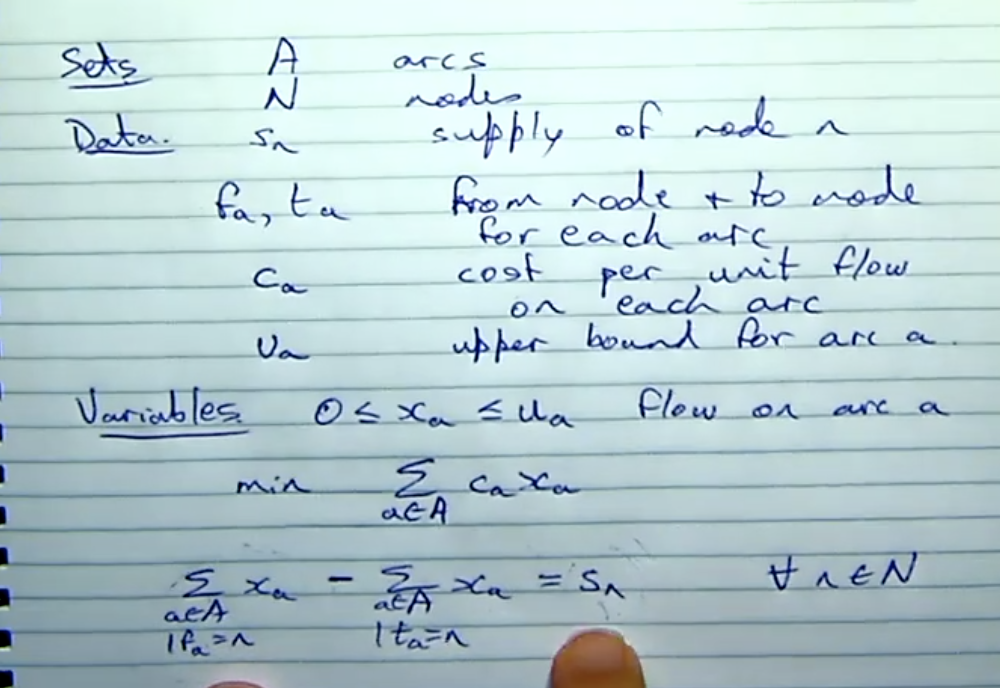 Sets A arcs
N nodes
Data. sₙ supply of node n
fₐ, tₐ from node + to node
for each arc
cₐ cost per unit flow
on each arc
uₐ upper bound for arc a.
Variables 0 ≤ xₐ ≤ uₐ flow on arc a
min ∑ cₐxₐ
a∈A
∑ xₐ - ∑ xₐ = sₙ ∀ n∈N
a∈A a∈A
|fₐ=n |tₐ=n